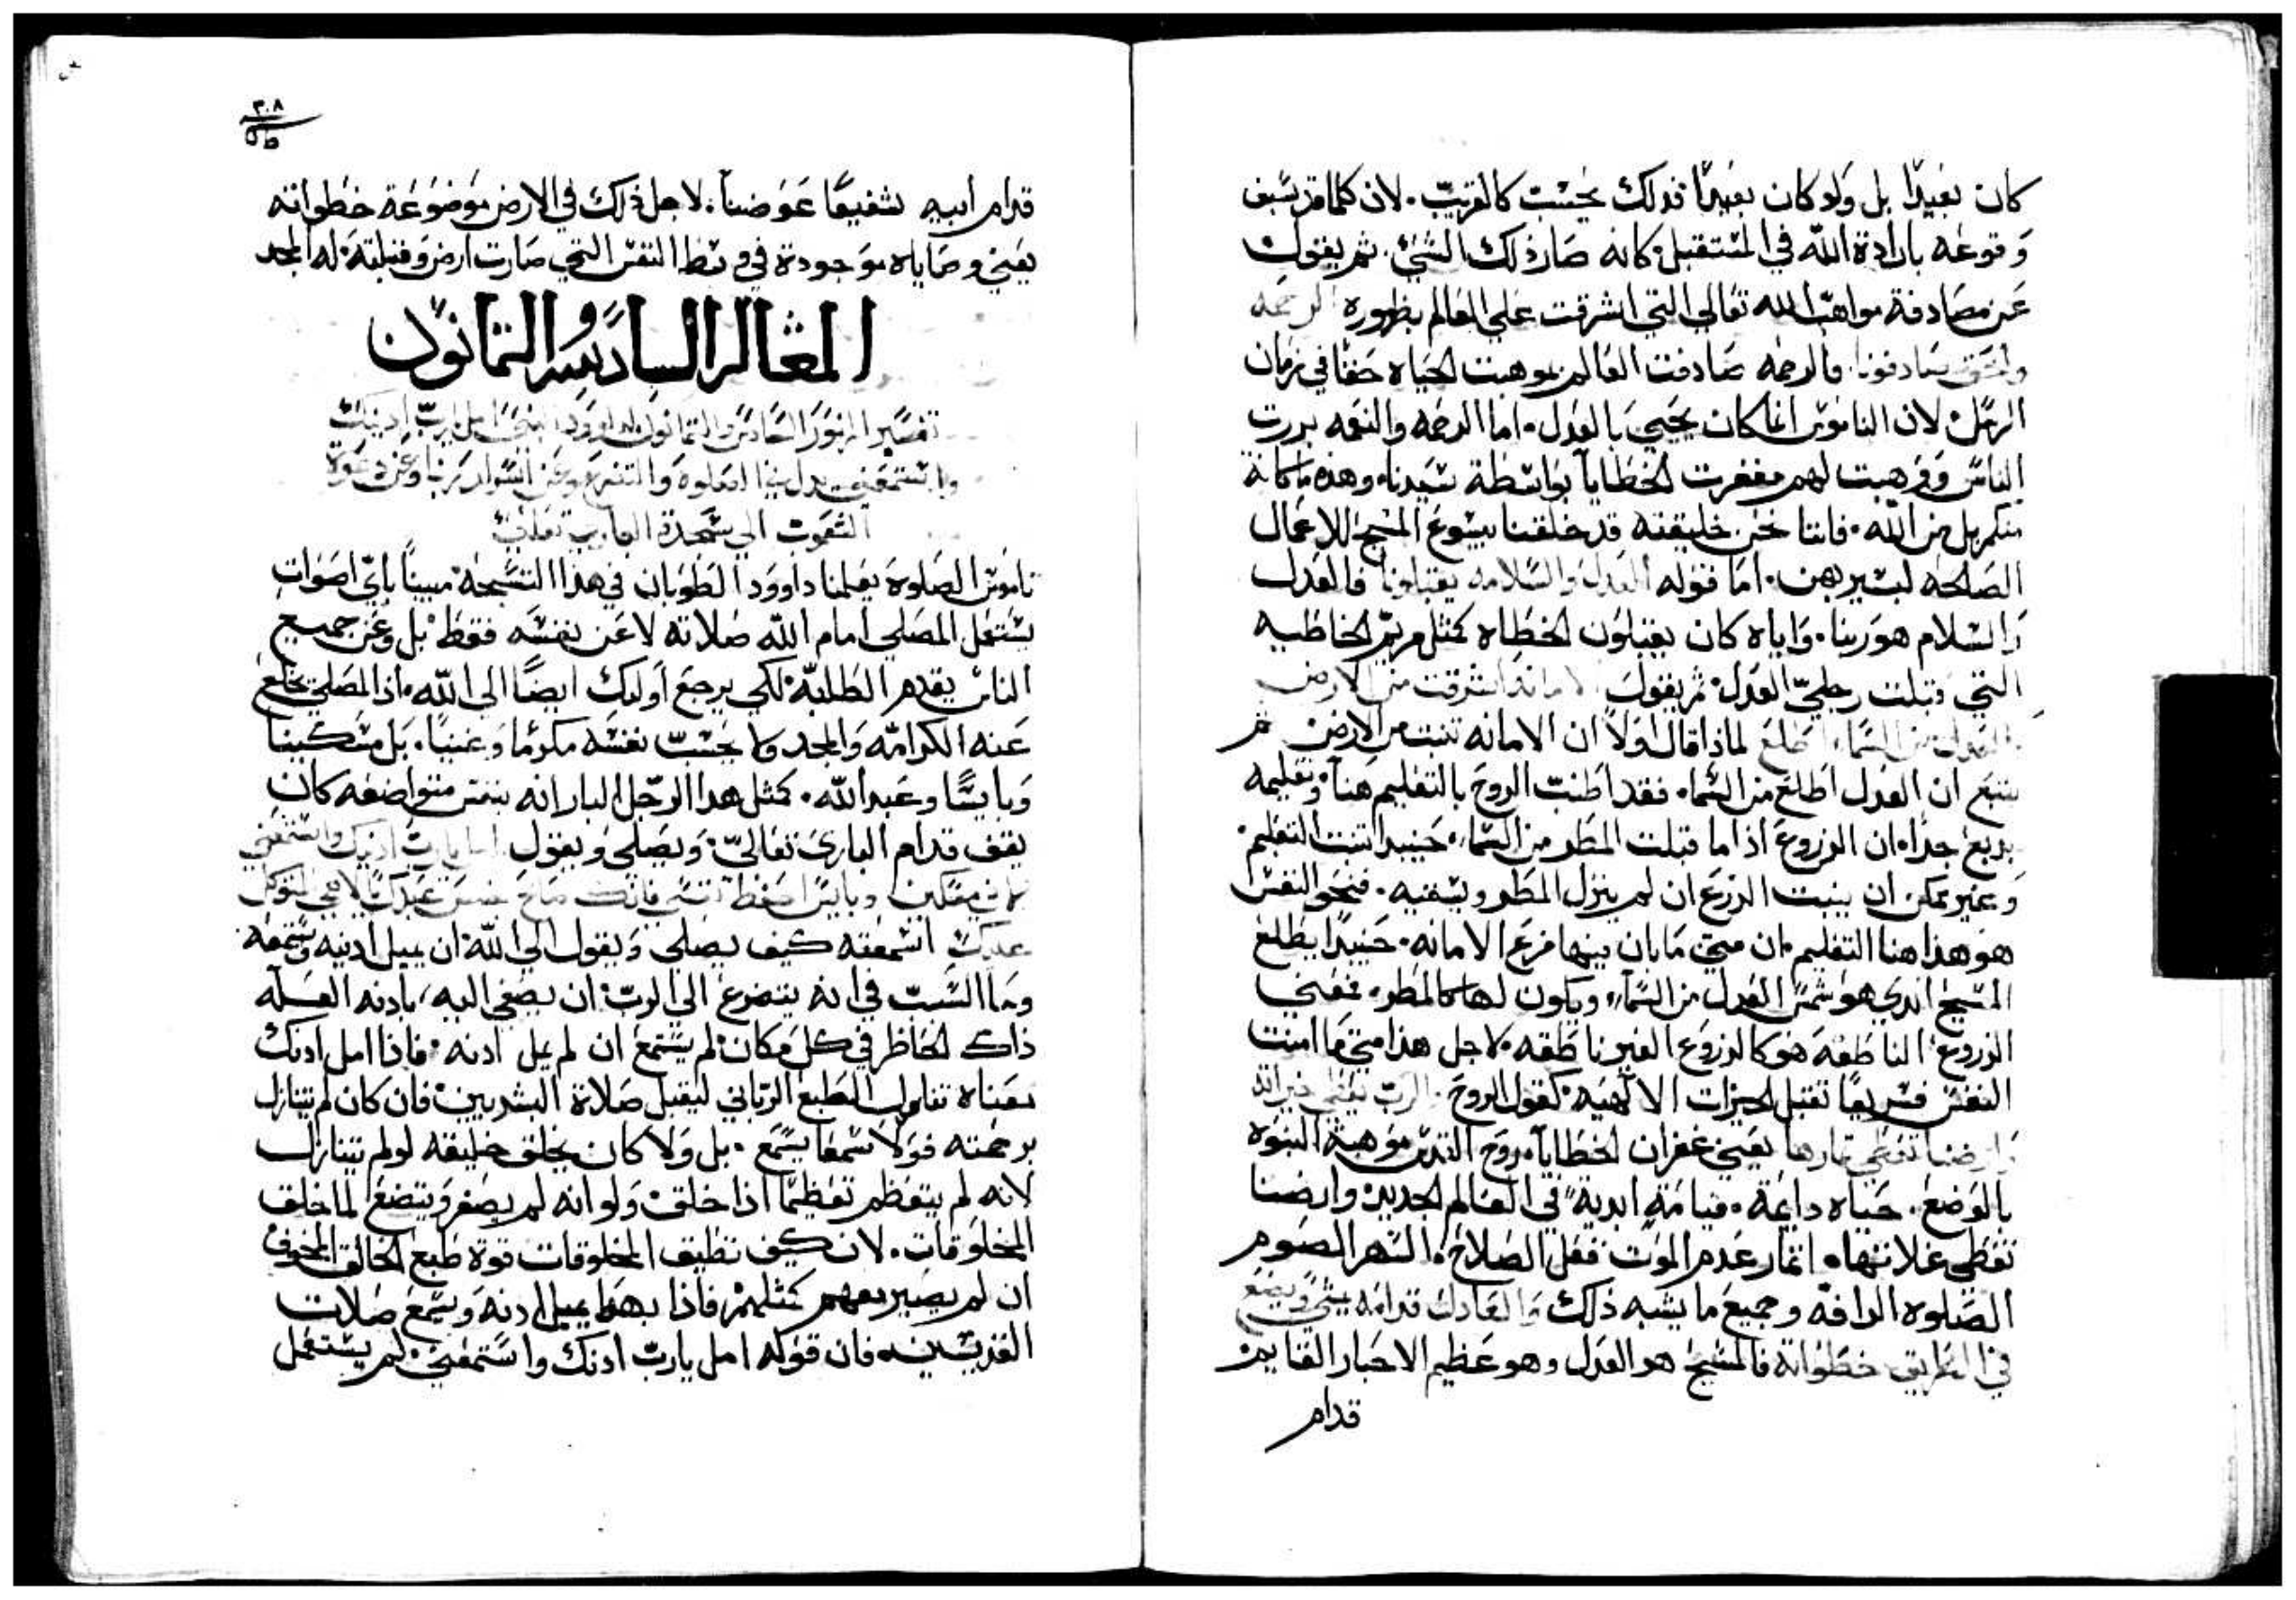 كان بعيدًا بل ولو كان بعيدًا فذلك يحسب كالقريب. لان كلما قد سبق
وقوعه بارادة الله في المستقبل كانه صار ذلك الشي. ثم يقول
عن مصادفة مواهب الله تعالى التي اشرقت على العالم بظهوره الرحمه
والحق تصادفونا. فالرحمه صادفت العالم بموهبت الحياه حقًا في زمان
الرسل لان الناموس انما كان يحيي بالعدل. اما الرحمه والنعمه بررت
الناس ووهبت لهم مغفرت الخطايا بواسطة سيدنا. وهذه ما كانة
منكم بل من الله. فاننا نحن خليقته قد خلقنا بيسوع المسيح للاعمال
الصالحه لنسير بهن. اما قوله العدل والسلامه يقتبلونا فالعدل
والسلام هو ربنا. واياه كان يقبلون الخطاه كمثل مريم الخاطيه
التي قبلت رجليّ العدل. ثم يقول الامانه اشرقت من الارض
والعدل من السماء اطلع لماذا قال اولا ان الامانه تنبت من الارض ثم
يتبع ان العدل اطلع من السماء. فقد اطنبت الروح بالتعليم هنا وتعليمه
بديع جدا. ان الزروع اذا ما قبلت المطر من السماء. حينيدا تنبت التعليم.
وغير ممكن ان ينبت الزرع ان لم ينزل المطر ويسقيه. فنحو النفس
هو هذا هنا التعليم. ان متى ما بان بينها فرع الامانه. حينيدا يطلع
المسيح الدي هو شمس العدل من السماء. ويكون لها كالمطر. فمعنى
الزروع الناطقه هو كالزروع الغير ناطقه. لاجل هذا متى ما امنت
النفس فسريعًا تقتبل الخيرات الالهيه. كقول الروح. الرب يعطي خيراته
وارضنا تعطي ثمارها يعني غفران الخطايا. روح القدس موهبة البنوه
بالوضع. حياه دايمة. قيامة ابدية في العالم الجديد. وارضنا
تعطي غلاتها. اثمار عدم الموت فعل الصلاح. السهر الصوم
الصلوه الرافه وجميع ما يشبه ذلك والعادل قدامه يشي ويضع
في الطريق خطواته فالمسيح هو العدل وهو عظيم الاحبار القايم
قدام
٣٠٨
قدام ابيه شفيعًا عوضنا. لاجل ذلك في الارض موضوعة خطواته
يعني وصاياه موجودة في وسط النفس التي صارت ارض وقبلته. له المجد
المقالـ السادس والثمانون
تفسير المزمور السادس والثمانون لداوود النبي امل يرب ادنيك
واستمعني يدل بهذا الصلوه والتضرع وعن اسرار ربنا وعن دعوة
الشعوب الى سجدة
ناموس الصلوة يعلمنا داوود الطوبان في هذا التسبحة مبينًا باي اصوات
يستعمل المصلي امام الله صلاته لا عن نفسه فقط. بل وعن جميع
الناس يقدم الطلبة. لكي يرجع اوليك ايضًا الى الله. اذ المصلي يخلع
عنه الكرامه والمجد ولا يحسب نفسه مكرمًا وغنيًا. بل مسكينا
وبايسًا وعبد الله. كمثل هدا الرجل البار انه بنفس متواضعه كان
يقف قدام البارئ تعالى. ويصلي ويقول امل يارب ادنيك واستمعني
لاني مسكين وبايس احفظ نفسي فانك صالح خلص عبدك يالاهي المتوكل
عليك اسمعته كيف يصلي ويقول الى الله ان يميل ادنيه ويسمعه.
وما السبب في انه يتضرع الى الرب. ان يصغي اليه. بادنه العله
ذاك الحاظر في كل مكان. لم يسمع ان لم يمل ادنه. فاذا امل ادنك
معناه تنازل الطبع الرباني ليقبل صلاة البشريين. فان كان لم يتنازل
برحمته فولا سمعًا يسمع. بل ولا كان يخلق خليقه لو لم يتنازل
لانه لم يتعظم تعظيمًا اذا خلق. ولو انه لم يصغر ويتضع لما خلق
المخلوقات. لان كيف تطيق المخلوقات قوة طبع الخالق المخوف
ان لم يصير معهم كمثلهم. فاذا بهدا يميل ادنه ويسمع صلات
القديسين. فان قوله امل يارب ادنك واستمعني. لم يستعمل